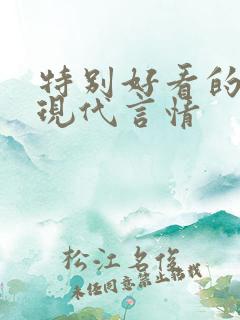 特别好看的
现代言情
松江名俊
未经同意禁止转载